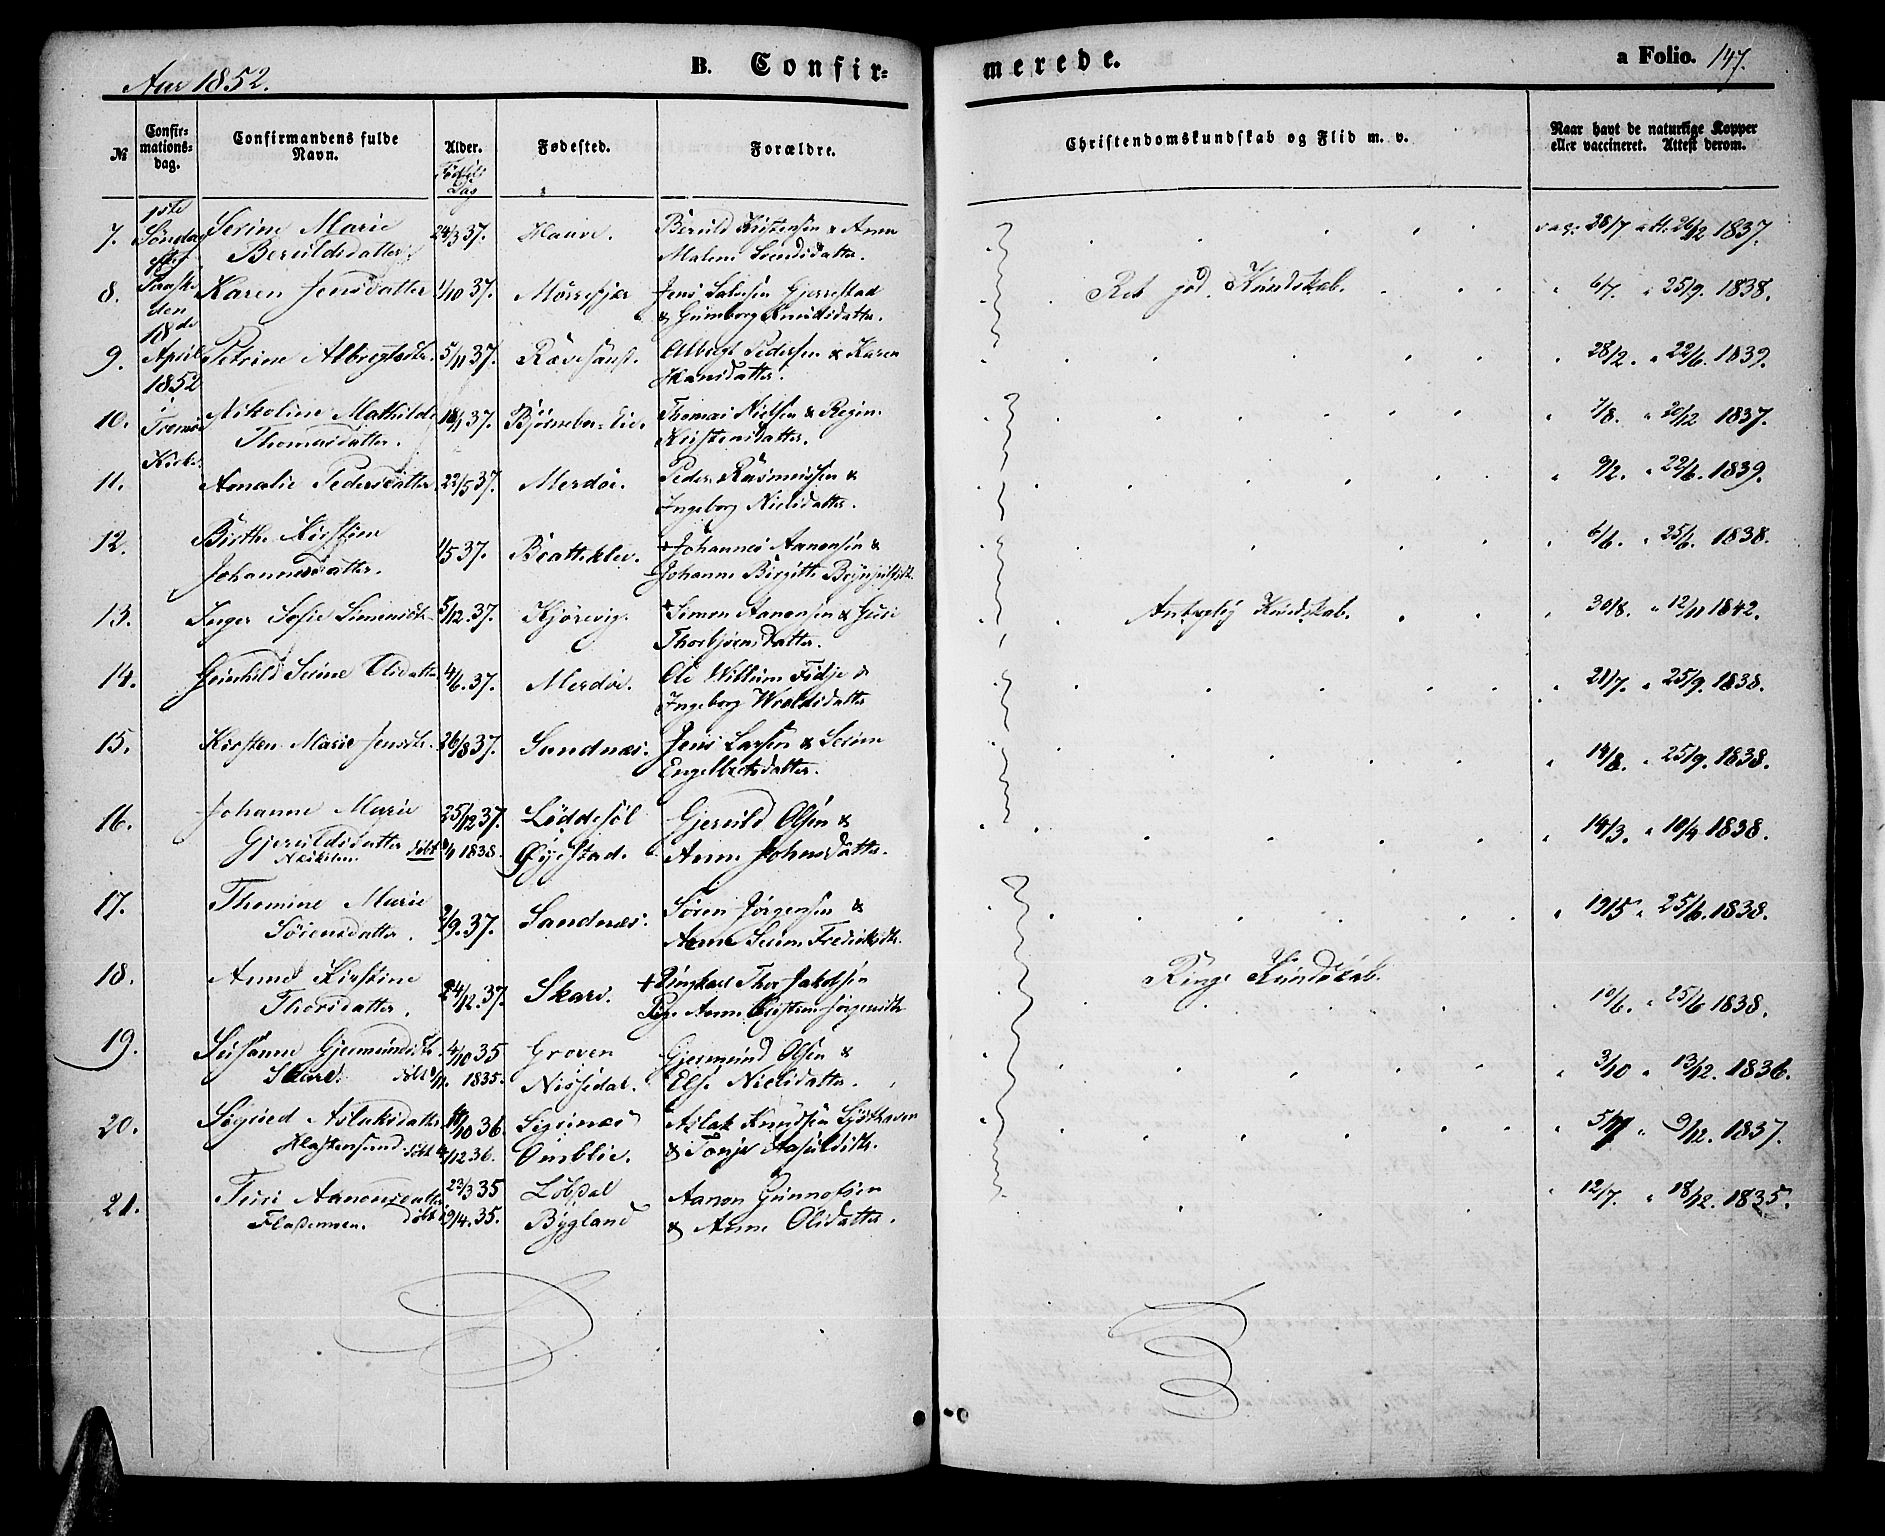 Aar 1852.
B. Confir-
merede.
a Folio. 147.
№
Confir-
mations-
dag.
Confirmandens fulde
Navn.
Alder.
Fødsels
Dag
Fødested.
Forældre.
Christendomskundskab og Flid m. v.
Naar havt de naturlige Kopper
eller vaccineret. Attest derom.
1ste
Søndag
efter
Paaske
den
18de
April
1852
i
Tromø
Kirke
7. Serine Marie 24/3 37. Hauve. Beruld Kistensen & Anne vac: 28/7 att. 26/12 1837.
Beruldsdatter. Malene Svendsdatter.
8. Karen Jensdatter 1/10 37. Mørrefjær Jens Salvesen Gjerrestad Ret god Kundskab. " 6/7. " 25/9. 1838.
& Gunborg Knudsdatter.
9. Petrine Albregtsdtr. 5/11 37. Rævesand. Albregt Pedersen & Karen " 28/2. " 22/6. 1839.
Hansdatter.
10. Nikoline Mathilde 18/1 37. Bjørneboe-Lie. Thomas Nielsen & Regine " 7/8. " 20/12 1837.
Thomasdatter. Kirstensdatter.
11. Amalie Pedersdatter 22/5 37. Merdøe. Peder Rasmussen & " 9/2. " 22/6. 1839.
Ingeborg Nielsdatter.
12. Birthe Kirstine 1/5 37. Bratteklev. + Johannes Aanensen & " 6/6. " 25/6. 1838.
Johannesdatter. Johanne Birgitte Brynjulfsdtr.
13. Inger Sofie Simensdtr. 5/12. 37. Kjørevig. + Simon Aanensen & Guri Antagelig Kundskab. " 30/8. " 12/11 1842.
Thorbjørnsdatter.
14. Gunhild Serine Olsdatter 4/6. 37. Merdøe. Ole Willum Fidje & " 21/7. " 25/9. 1838.
Ingeborg Wroldsdatter
15. Kirsten Marie Jensdtr. 26/8 37. Sandnæs. Jens Larsen & Serine " 14/8. " 25/9. 1838.
Engelbretsdatter.
16. Johanne Marie 25/12 37. Løddesøl Gjeruld Olsen & " 14/3. " 10/4 1838.
Gjeruldsdatter døbt 1838. Øyestad. Anne Johnsdatter.
17. Thomine Marie 2/9. 37. Sandnæs. Søren Jørgensen & " 19/5 " 25/6. 1838.
Sørensdatter. Anne Serine Fredriksdtr.
18. Anne Kirstine 24/12. 37. Skare. + Ungkarl Thor Jakobsen Ringe Kundskab. " 10/6. " 25/6 1838.
Thorsdatter. Pige Anne Kirstine Jørgensdtr
19. Susanne Gjermundsdtr. 4/10 35 Groven Gjermund Olsen & " 3/10 " 13/12. 1836.
Skare. døbt 1835. Nissedal. Else Nielsdatter.
20. Sigried Aslaksdatter 10/10 36 Sigrinæs Aslak Knudsen " 9/12. 1837.
døbt /12 36. Omblie. & Tonje
21. Turi Aanensdatter 23/3 35 Løbdal Aanon Gunnolsen " 12/7. " 18/12. 1835.
Fladennen. Døbt 19/4. 35. Bygland & Anne Olsdatter.